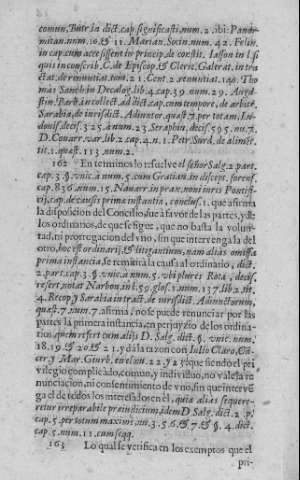 comun, Butr. in dict. cap. significasti. num. 2. ibi: Panor-
mitan. num. 10. & 11. Marian. Socin. num. 42. Felin.
in cap. cum accessissent in princip. de constit. Iasson in l. si
quis in conscrib. C. de Episcop. & Cleric. Galerat. in tra
ctat. de renuntiat. tom. 21. Cent. 2. renuntiat. 140. Tho
mas Sanch. in Decalog. lib. 4. cap. 39. num. 29. Augu-
stin. Barb. in collect. ad dict. cap. cum tempore, de arbitr.
Sarabia, de iurisdict. Adiunctor. quæst. 7. per totam, Lu-
douis. decis. 325. à num. 23. Seraphin. decis. 595. nu. 7.
D. Couarr. var. lib. 2. cap. 4. n. 1. Petr. Surd. de alimen-
tit. 1. quæst. 113. num. 2.
162 En terminos lo resuelve el señor Salg. 2. part.
cap. 3. §. vnic. à num. 5. cum Gratian. in discept. forens.
cap. 836. num. 15. Nauarr. in prax. noui iuris Pontifi-
cij, cap. de causis prima instantia, conclus. 1. que afirma
la disposicion del Concilio, fue à favòr de las partes, y de
los ordinarios, de que se sigue, que no basta la volun-
tad, ni prorrogacion del vno, sin que intervenga la del
otro, hoc est ordinarij, & litigantium, nam aliàs omissa
prima instancia, se remitirà la causa al ordinario, dict.
2. part. cap. 3. §. vnic. à num. 5. vbi plures Rotæ, decis.
refert, notat Narbon. in l. 59. glos. 1. num. 137. lib. 2. tit.
4. Recop. y Sarabia in tract. de iurisdict. Adiunctorum,
quæst. 7. num. 7. afirma, no se puede renunciar por las
partes la primera instancia, en perjuyzio de los ordina-
rios, quem refert cum alijs D. Salg. dict. §. vnic. num.
18. 19. 20. & 21. y dà la razon con Iulio Claro,
cer. y Mar. Giurb. en el num. 22. y 23. que siendo el pri
vilegio complicado, comun, y individuo, no vale la re
nunciacion, ni consentimiento de vno, sin que interven
ga el de todos los interesados en èl, quia aliàs sequere-
retur irreparabile præiudicium, idem D. Salg. dict. 2. p.
cap. 5. per totum maximè, nu. 3. 5. 6. 7. & §. 4. dict.
cap. 5. num. 11. cum seqq.
163 Lo qual se verifica en los exemptos que el
pri-